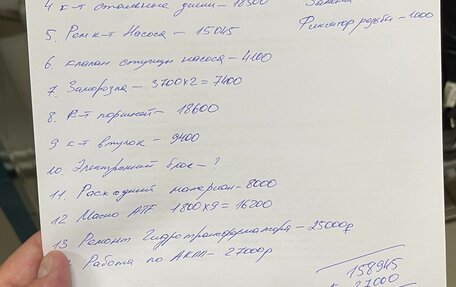 4 к-т стальные диски – 18500
5. Рем к-т Насоса – 15045
Фиксатор резьбы – 1000
6. клапан ступицы насоса – 4100
7. Заморозка – 3700х2 = 7400
8. к-т поршней – 18600
9 к-т втулок – 9400
10. Электронный блок – ?
11. Расходный материал – 8000
12 Масло ATF 1800х9 = 16200
13 Ремонт Гидротрансформатора – 25000р
Работа по АКПП – 27000р
158945
27000